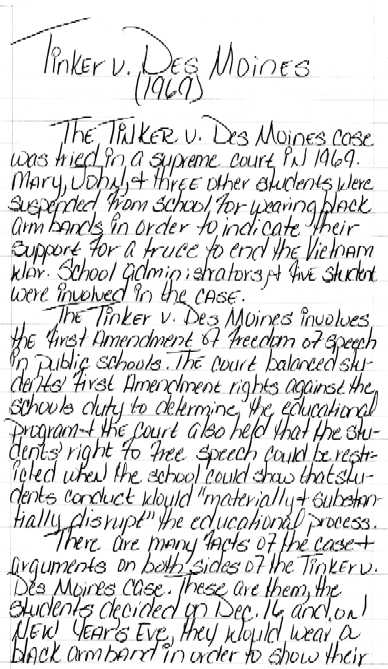 Tinker v. Des Moines
(1969)
The Tinker v. Des Moines case
was tried in a supreme court in 1969.
Mary, John, + three other students were
suspended from school for wearing black
armbands in order to indicate their
support for a truce to end the Vietnam
War. School administrators, + five student
were involved in the case.
The Tinker v. Des Moines involves
the First Amendment of freedom of speech
in public schools. The court balanced stu-
dents' First Amendment rights against the
schools duty to determine, the educational
program + the court also held that the stu-
dents' right to free speech could be restr-
icted when the school could show that stu-
dents conduct would "materially + substan-
tially disrupt" the educational process.
There are many facts of the case +
arguments on both sides of the Tinker v.
Des Moines case. These are them, the
students decided on Dec. 16 and on
New Year's Eve, they would wear a
black armband in order to show their